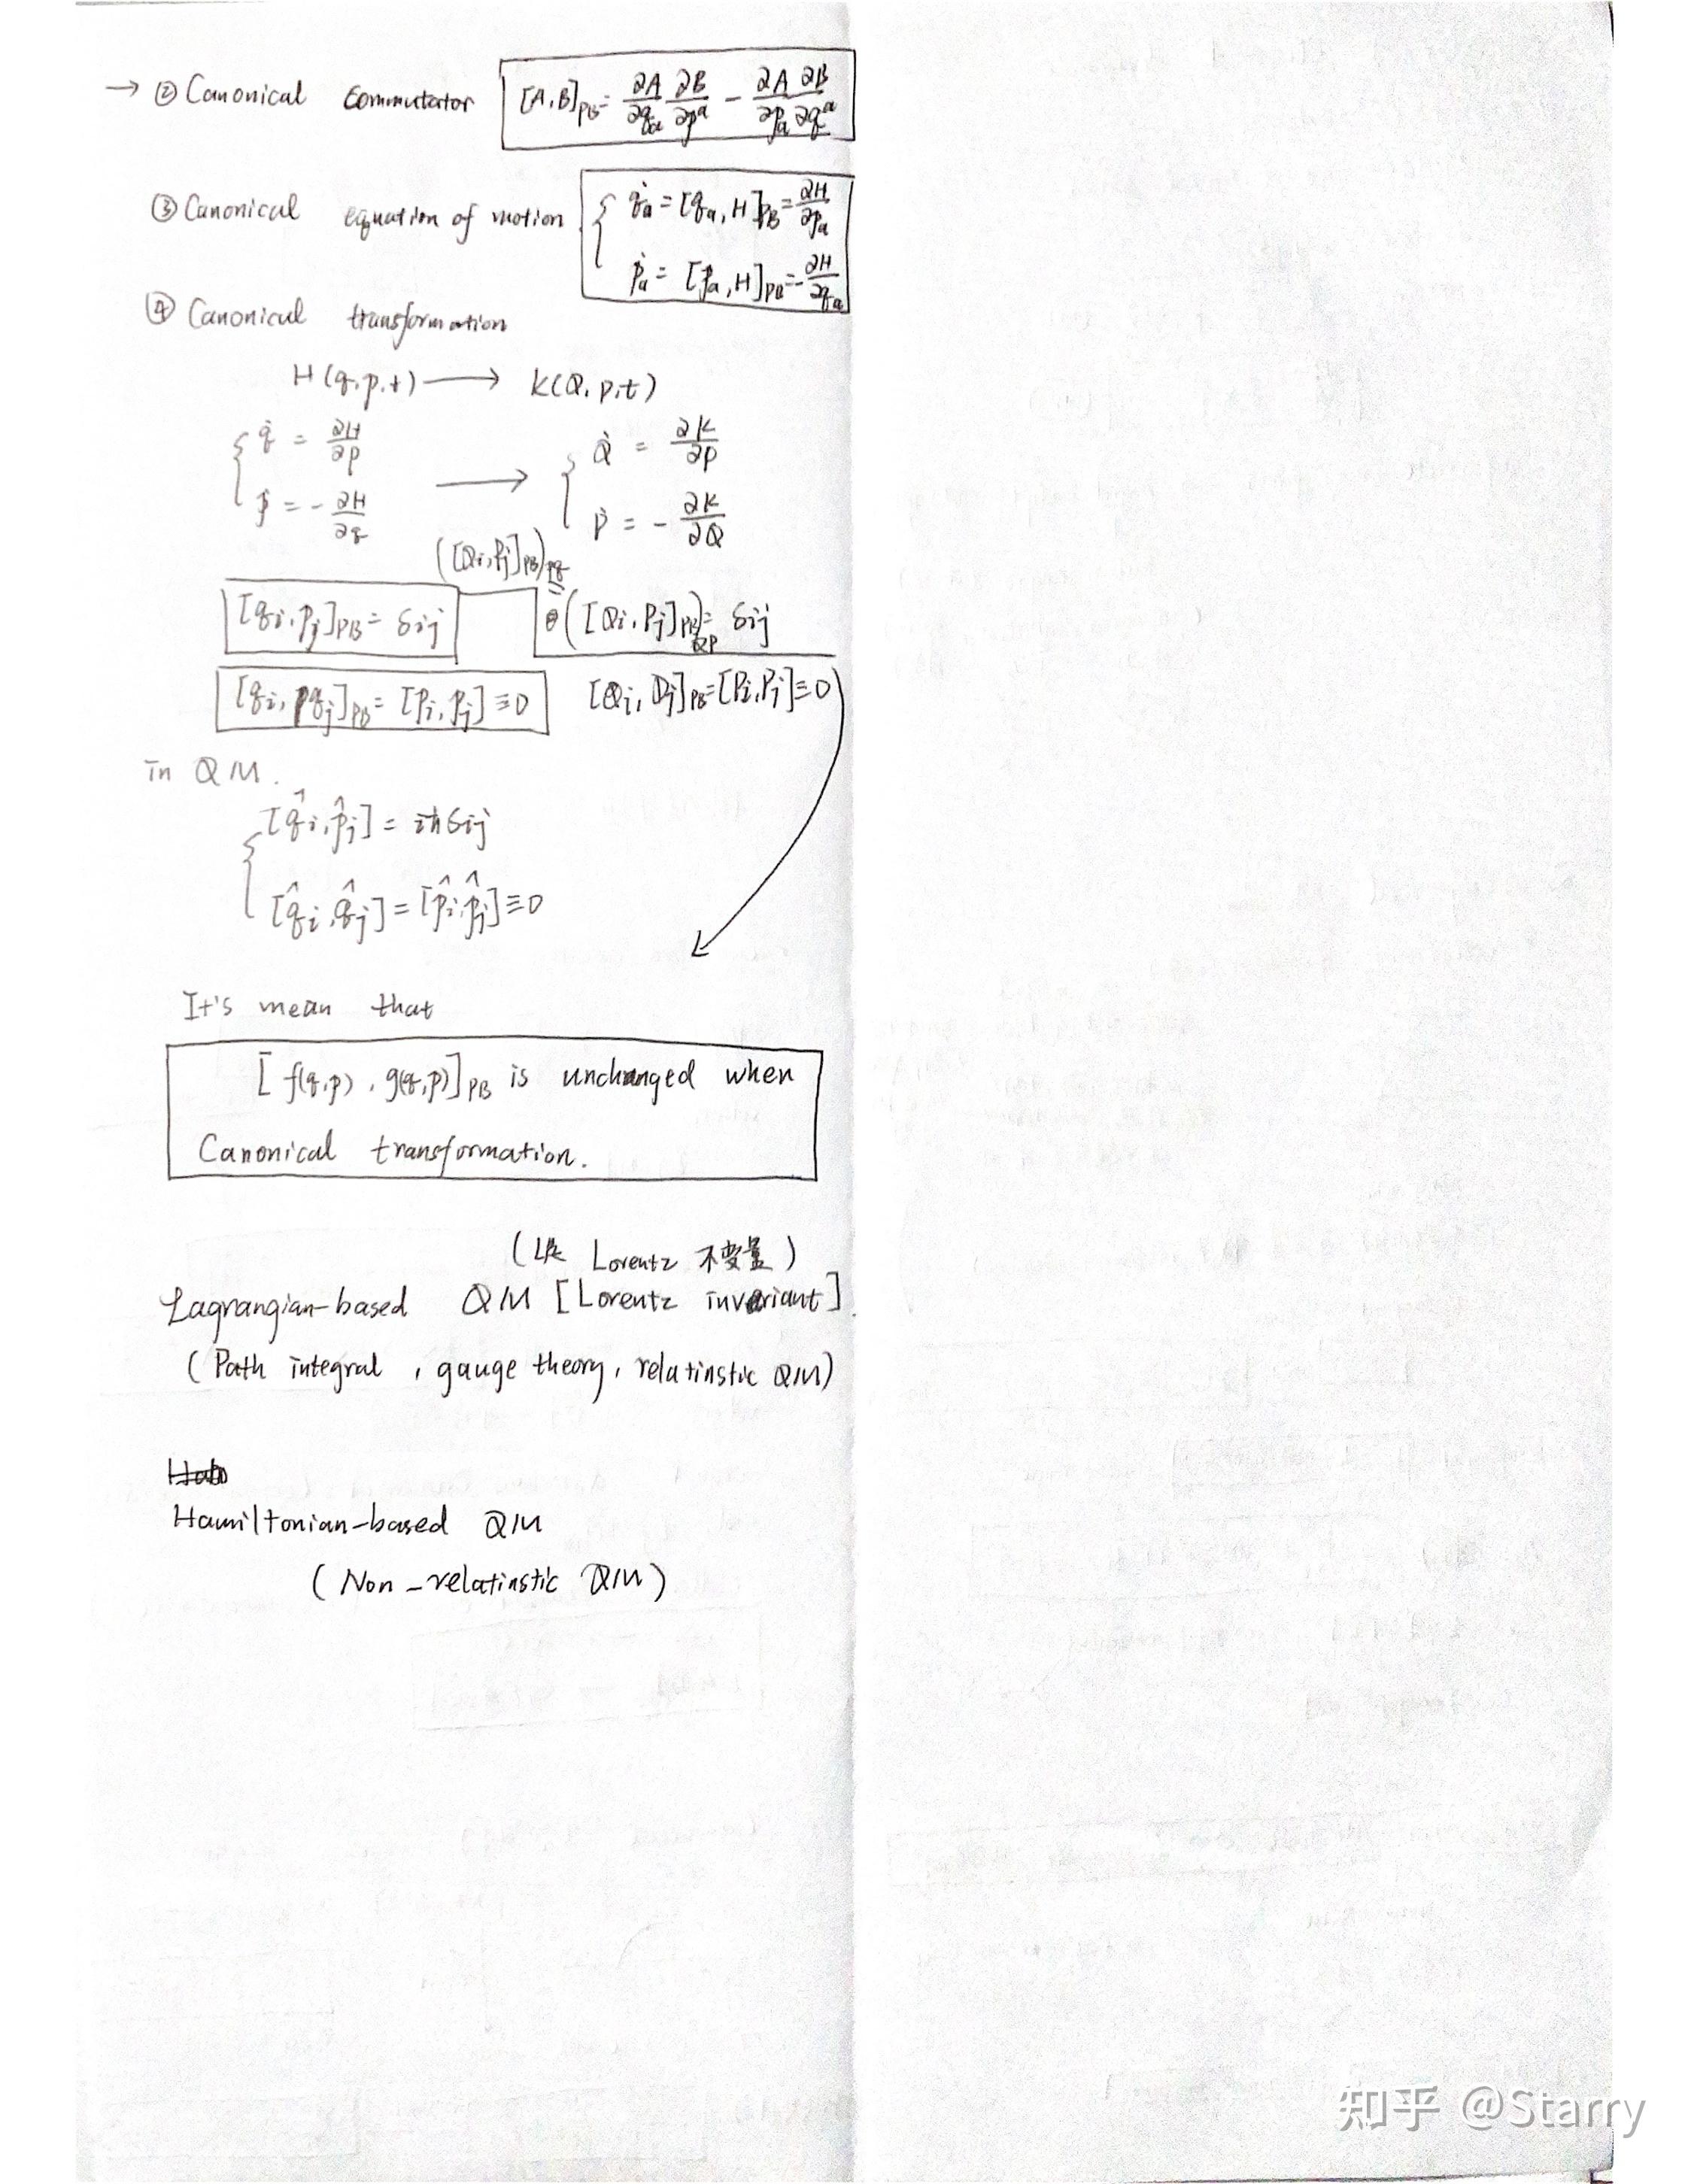 → ② Canonical Commutator [A,B]_PB = ∂A/∂q_a ∂B/∂p^a - ∂A/∂p_a ∂B/∂q^a
③ Canonical equation of motion { q̇_a = [q_a, H]_PB = ∂H/∂p_a
ṗ_a = [p_a, H]_PB = -∂H/∂q_a
④ Canonical transformation
H(q,p,t) → K(Q,P,t)
{ q̇ = ∂H/∂p → { Q̇ = ∂K/∂P
ṗ = -∂H/∂q Ṗ = -∂K/∂Q
([Q_i,P_j]_PB)_pq
=
[q_i,p_j]_PB = δ_ij ([Q_i,P_j]_PB)_QP = δ_ij
[q_i, q_j]_PB = [p_i,p_j] ≡ 0 [Q_i, Q_j]_PB = [P_i,P_j] ≡ 0
in QM.
{ [q̂_i,p̂_j] = iħδ_ij
[q̂_i,q̂_j] = [p̂_i,p̂_j] ≡ 0
It's mean that
[f(q,p), g(q,p)]_PB is unchanged when
Canonical transformation.
( Lorentz 不变量)
Lagrangian-based QM [Lorentz invariant].
(Path integral, gauge theory, relatinstic QM)
Hamiltonian-based QM
(Non-relatinstic QM)
知乎 @Starry